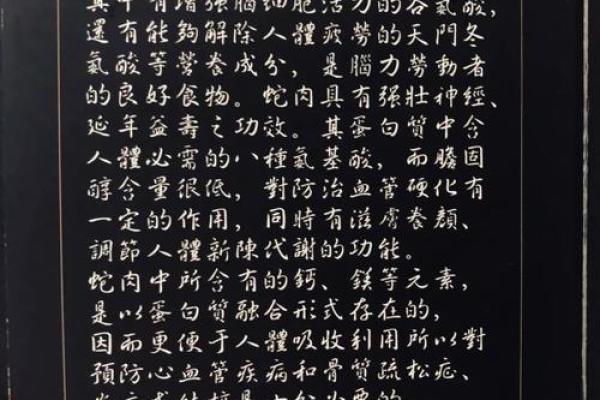 其中有增强腦细胞活力的谷氨酸,
還有能夠解除人體疲勞的天門冬
氨酸等營養成分, 是腦力勞動者
的良好食物。蛇肉具有强壯神經、
延年益壽之功效。其蛋白質中含
人體必需的八種氨基酸, 而膽固
醇含量很低, 對防治血管硬化有
一定的作用, 同時有滋膚養顏、
調節人體新陳代謝的功能。
蛇肉中所含有的鈣、鎂等元素,
是以蛋白質融合形式存在的,
因而更便于人體吸收利用所以對
預防心血管疾病和骨質疏松症、